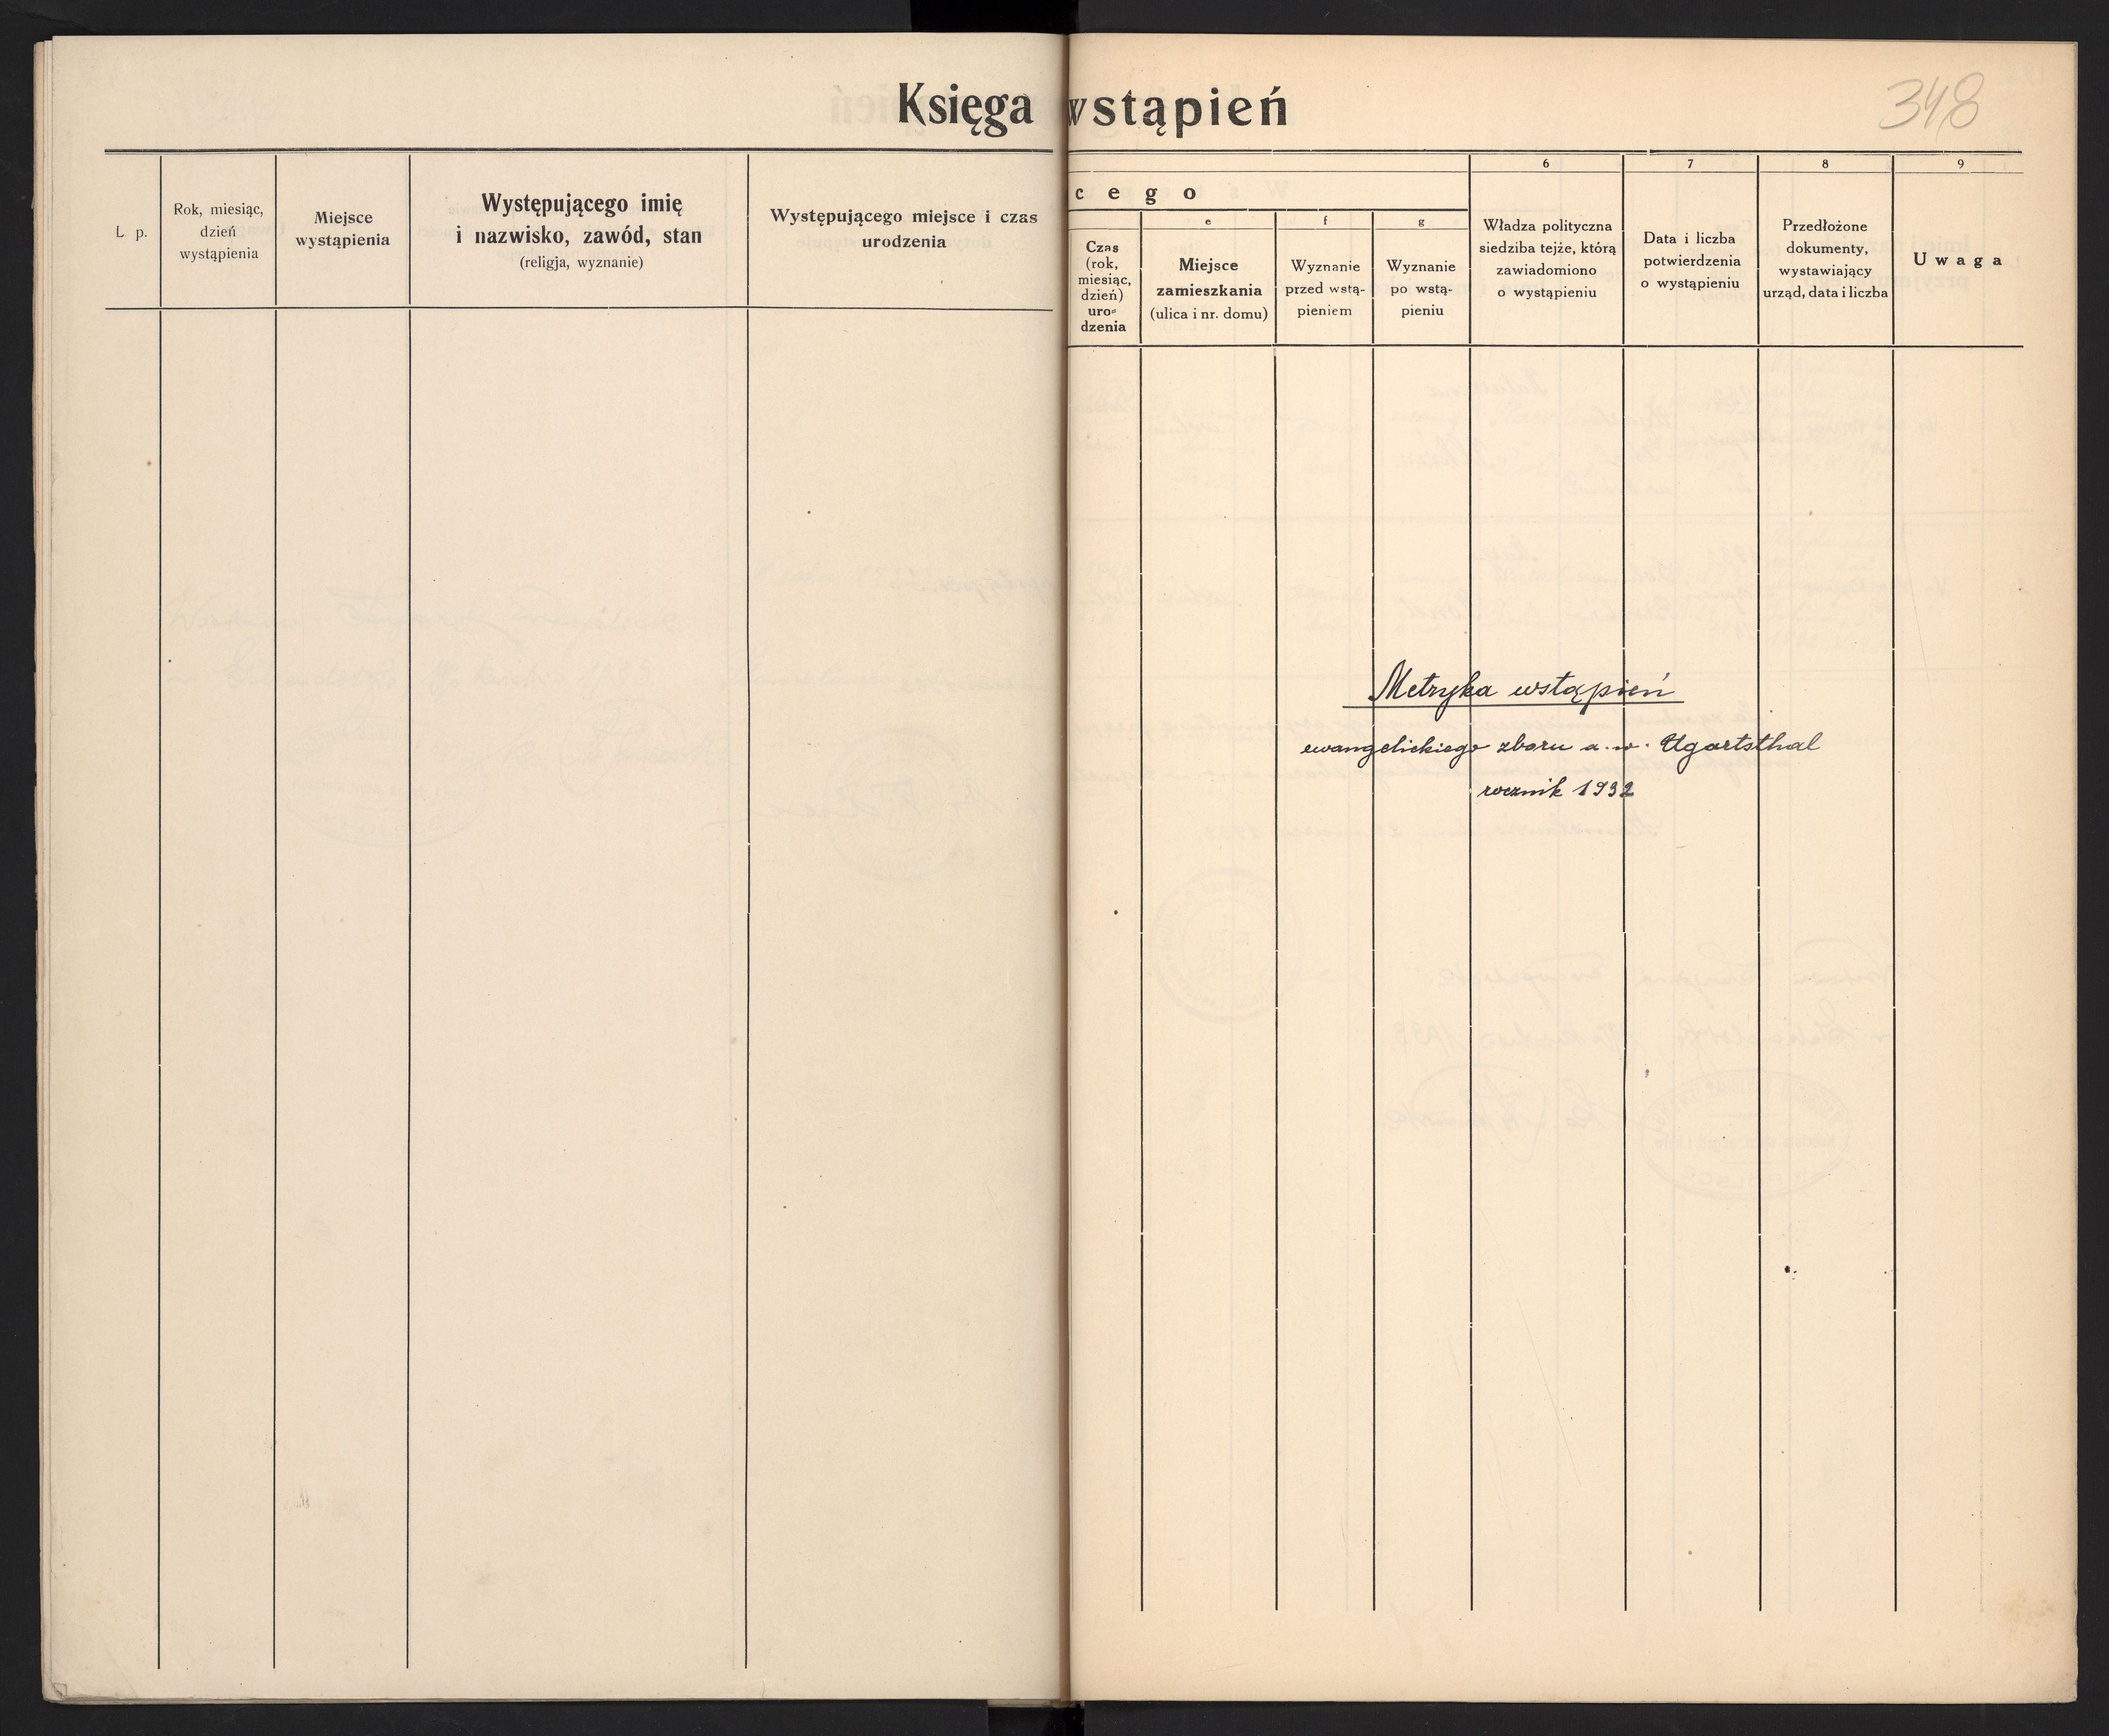 Księga wstąpień
348
L. p.
Rok, miesiąc,
dzień
wystąpienia
Miejsce
wystąpienia
Występującego imię
i nazwisko, zawód, stan
(religja, wyznanie)
Występującego miejsce i czas
urodzenia
c e g o
Czas
(rok,
miesiąc,
dzień)
uro=
dzenia
e
Miejsce
zamieszkania
(ulica i nr. domu)
f
Wyznanie
przed wstą-
pieniem
g
Wyznanie
po wstą-
pieniu
6
Władza polityczna
siedziba tejże, którą
zawiadomiono
o wystąpieniu
7
Data i liczba
potwierdzenia
o wystąpieniu
8
Przedłożone
dokumenty,
wystawiający
urząd, data i liczba
9
Uwaga
Metryka wstąpień
ewangelickiego zboru a. w. Ugartsthal
rocznik 1932